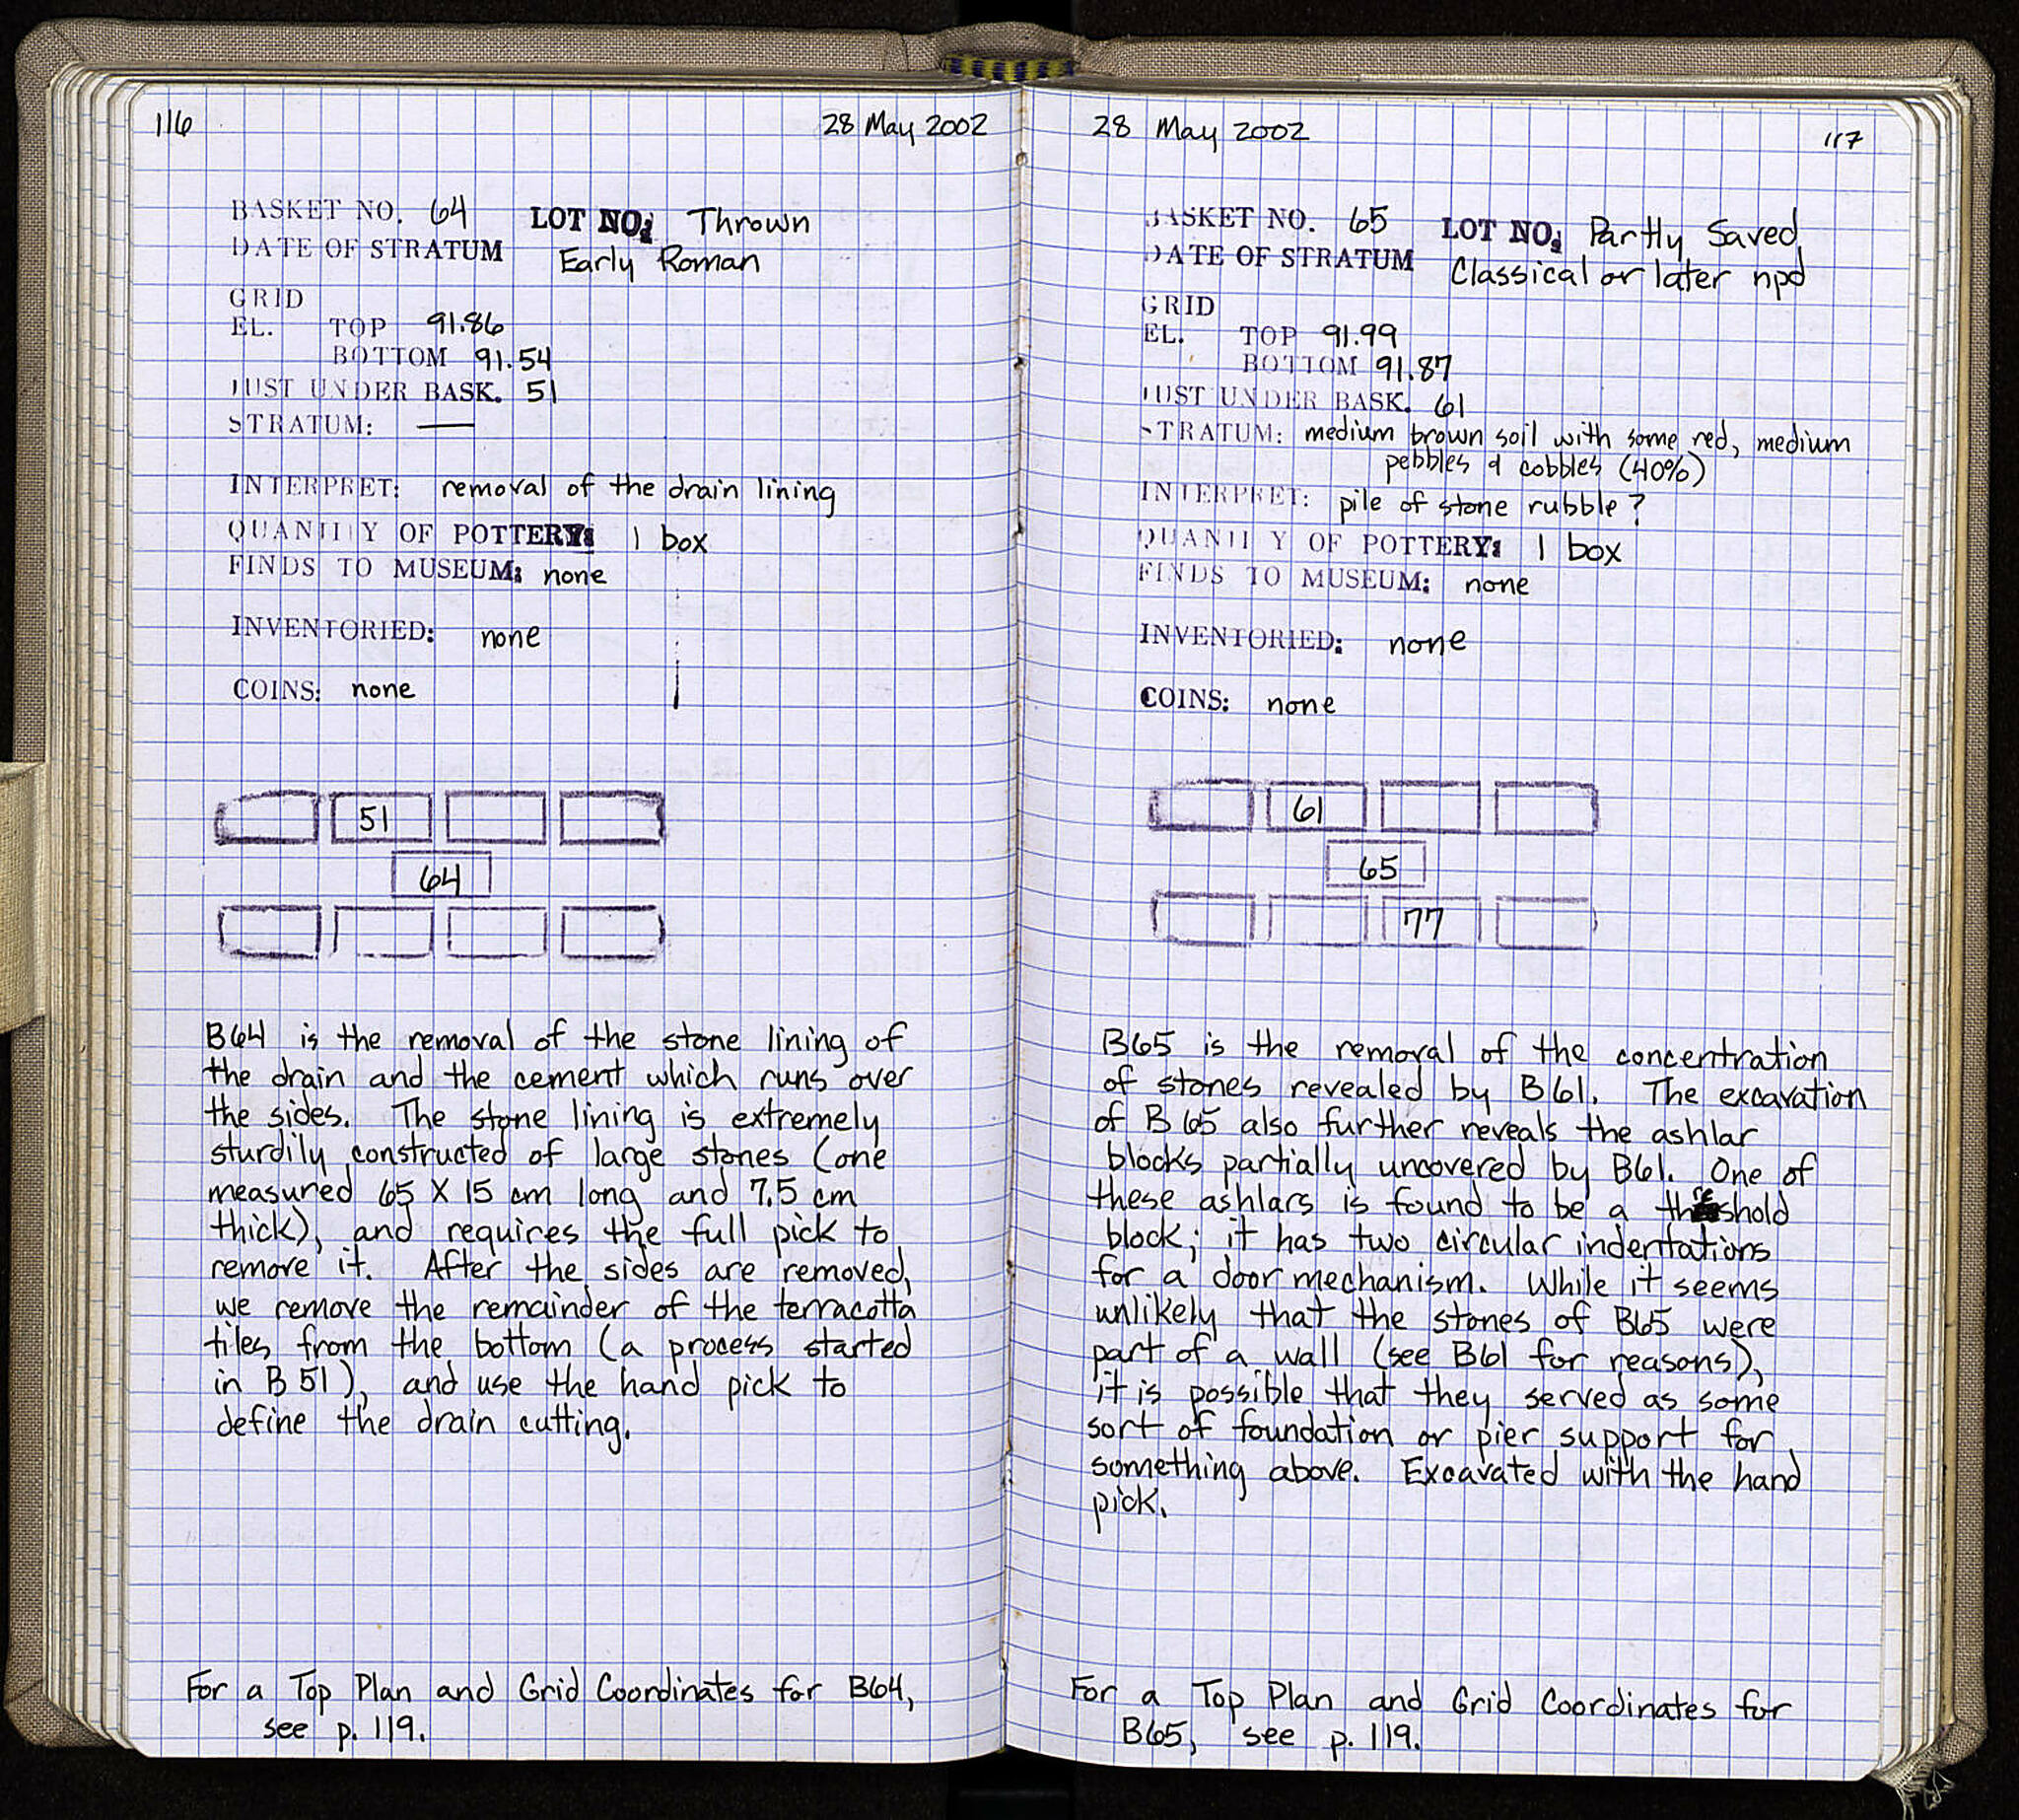 116
28 May 2002
BASKET NO. 64 LOT NO: Thrown
DATE OF STRATUM Early Roman
GRID
EL. TOP 91.86
BOTTOM 91.54
JUST UNDER BASK. 51
STRATUM: —
INTERPRET: removal of the drain lining
QUANTITY OF POTTERY: 1 box
FINDS TO MUSEUM: none
INVENTORIED: none
COINS: none
51
64
B64 is the removal of the stone lining of
the drain and the cement which runs over
the sides. The stone lining is extremely
sturdily constructed of large stones (one
measured 65 X 15 cm long and 7.5 cm
thick), and requires the full pick to
remove it. After the sides are removed,
we remove the remainder of the terracotta
tiles from the bottom (a process started
in B51), and use the hand pick to
define the drain cutting.
For a Top Plan and Grid Coordinates for B64,
see p. 119.
28 May 2002
117
BASKET NO. 65 LOT NO: Partly Saved
DATE OF STRATUM Classical or later npd
GRID
EL. TOP 91.99
BOTTOM 91.87
JUST UNDER BASK. 61
STRATUM: medium brown soil with some red, medium
pebbles & cobbles (40%)
INTERPRET: pile of stone rubble?
QUANTITY OF POTTERY: 1 box
FINDS TO MUSEUM: none
INVENTORIED: none
COINS: none
61
65
77
B65 is the removal of the concentration
of stones revealed by B61. The excavation
of B65 also further reveals the ashlar
blocks partially uncovered by B61. One of
these ashlars is found to be a threshold
block; it has two circular indentations
for a door mechanism. While it seems
unlikely that the stones of B65 were
part of a wall (see B61 for reasons),
it is possible that they served as some
sort of foundation or pier support for
something above. Excavated with the hand
pick.
For a Top Plan and Grid Coordinates for
B65, see p. 119.